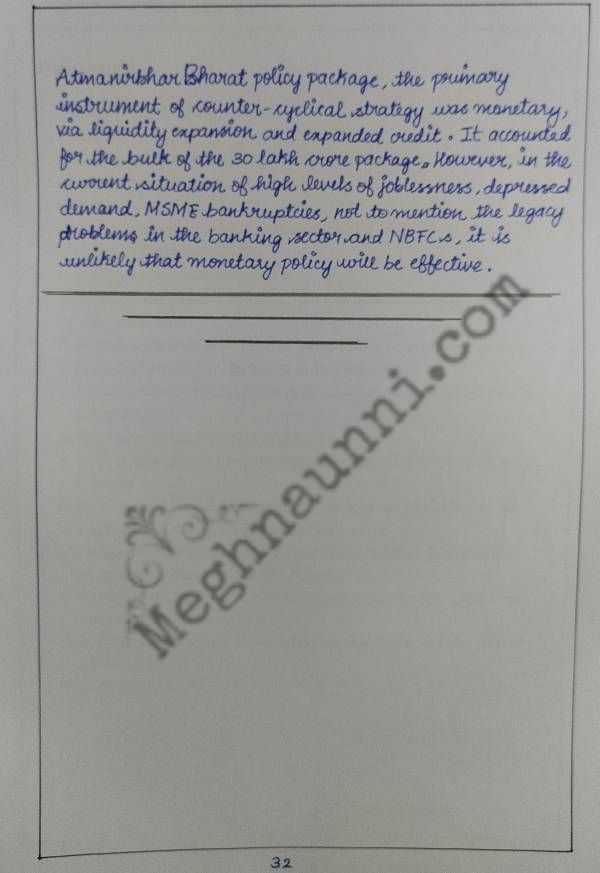 Atmanirbhar Bharat policy package, the primary
instrument of counter-cyclical strategy was monetary,
via liquidity expansion and expanded credit. It accounted
for the bulk of the 30 lakh crore package. However, in the
current situation of high levels of joblessness, depressed
demand, MSME bankruptcies, not to mention the legacy
problems in the banking sector and NBFCs, it is
unlikely that monetary policy will be effective.
Meghnaunni.com
32